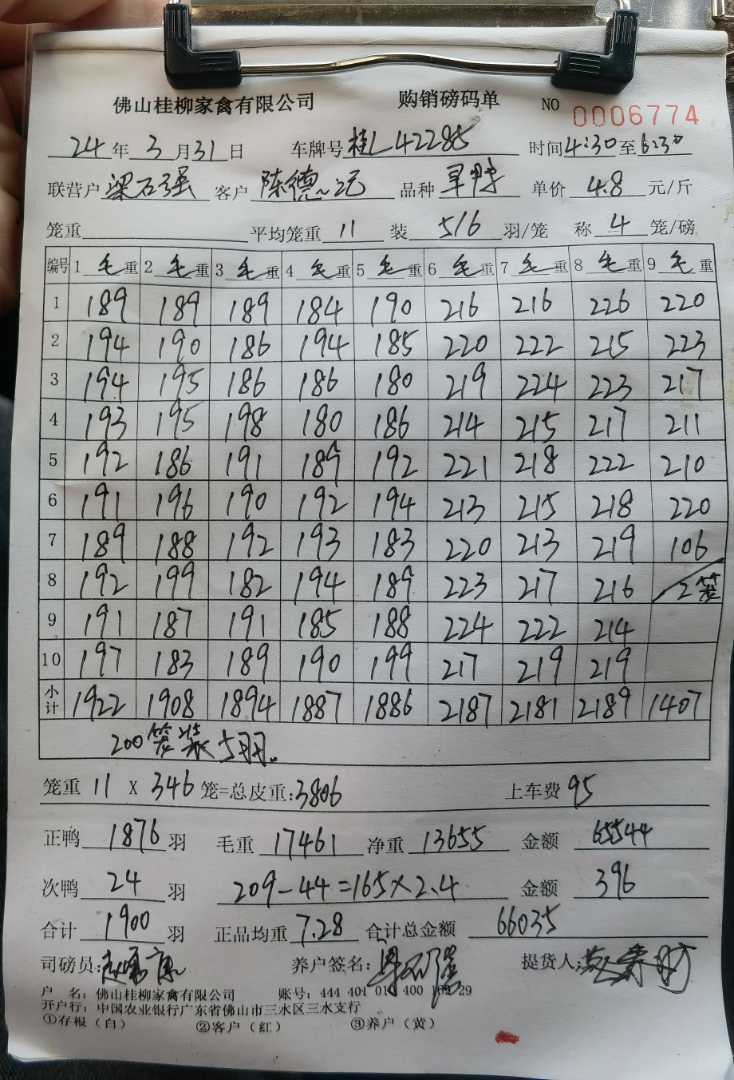 佛山桂柳家禽有限公司 购销磅码单 NO 0006774
24年3月31日 车牌号 桂L42285 时间 4:30至6:30
联营户 梁石强 客户 陈德记 品种 旱鸭 单价 4.8 元/斤
笼重 平均笼重 11 装 5/6 羽/笼 称 4 笼/磅
编号 1 毛重 2 毛重 3 毛重 4 毛重 5 毛重 6 毛重 7 毛重 8 毛重 9 毛重
1 189 189 189 184 190 216 216 226 220
2 194 190 186 194 185 220 222 215 223
3 194 195 186 186 180 219 224 223 217
4 193 195 198 180 186 214 215 217 211
5 192 186 191 189 192 221 218 222 210
6 191 196 190 192 194 213 215 218 220
7 189 188 192 193 183 220 213 219 106
8 192 199 182 194 189 223 217 216 2笼
9 191 187 191 185 188 224 222 214
10 197 183 189 190 199 217 219 219
小计 1922 1908 1894 1887 1886 2187 2181 2189 1407
200笼装5羽.
笼重 11 X 346 笼=总皮重:3806 上车费 95
正鸭 1876 羽 毛重 17461 净重 13655 金额 65544
次鸭 24 羽 209-44=165×2.4 金额 396
合计 1900 羽 正品均重 7.28 合计总金额 66035
司磅员: 养户签名: 提货人:
户 名: 佛山桂柳家禽有限公司 账号: 444 404 01 400 29
开户行: 中国农业银行广东省佛山市三水区三水支行
①存根(白) ②客户(红) ③养户(黄)